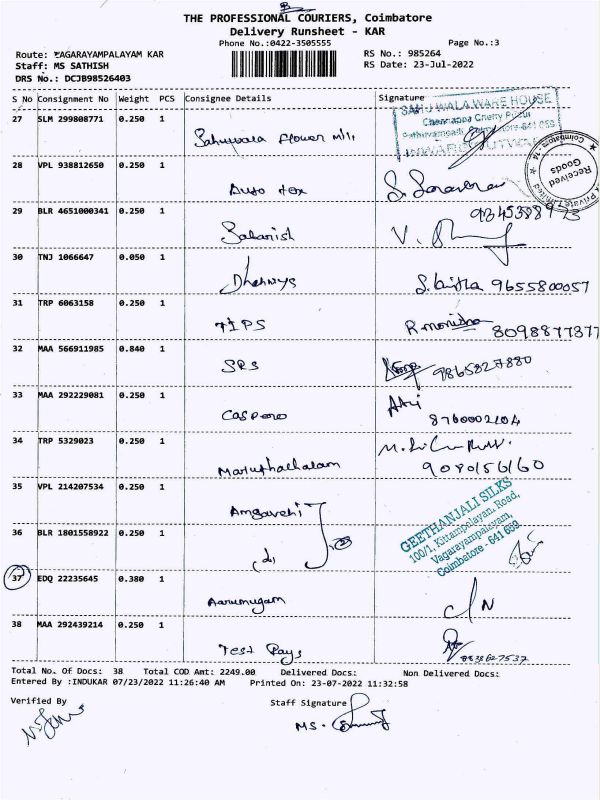 THE PROFESSIONAL COURIERS, Coimbatore
Delivery Runsheet - KAR
Phone No.:0422-3505555
Page No.:3
Route: VAGARAYAMPALAYAM KAR
RS No.: 985264
Staff: MS SATHISH
RS Date: 23-Jul-2022
DRS No.: DCJB98526403
S No Consignment No Weight PCS Consignee Details Signature
27 SLM 299808771 0.250 1 Flower
Chennappa Chetty Pudur
Received Goods
Coimbatore-14
Private Limited
28 VPL 938812650 0.250 1 Auto tex S. Saravanan
29 BLR 4651000341 0.250 1 V.
30 TNJ 1066647 0.050 1 9655800057
31 TRP 6063158 0.250 1 TIPS R monisha 8098877377
32 MAA 566911985 0.840 1 SRS 9865827880
33 MAA 292229081 0.250 1 8760002104
34 TRP 5329023 0.250 1 Maruthachalam 9080156160
35 VPL 214207534 0.250 1
GEETHANJALI SILKS
100/1, Kittampalayan, Road,
Vagarayampalayam,
Coimbatore - 641 659
36 BLR 1801558922 0.250 1
37 EDQ 22235645 0.380 1 Aarumugam
38 MAA 292439214 0.250 1 Test Rays
Total No. Of Docs: 38 Total COD Amt: 2249.00 Delivered Docs: Non Delivered Docs:
Entered By :INDUKAR 07/23/2022 11:26:40 AM Printed On: 23-07-2022 11:32:58
Verified By
Staff Signature
MS.